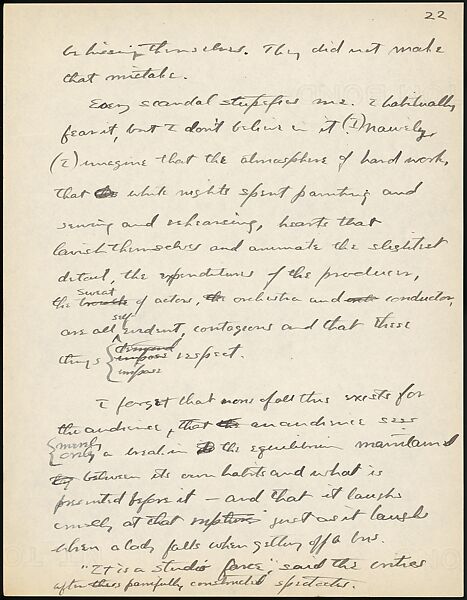 22
behaving themselves. They did not make
that mistake.
Every scandal stupefies me. I habitually
fear it, but I don't believe in it (I) naively
(I) imagine that the atmosphere of hard work,
that white nights spent painting and
sewing and rehearsing, hearts that
lavish themselves and animate the slightest
detail, the expenditures of the producer,
sweat
the of actors, the orchestra and conductor,
self
are all evident, contagious and that these
things demand respect.
impose
impose
I forget that none of all this exists for
the audience, that the an audience sees
merely
only a break in the equilibrium maintained
by between its own habits and what is
presented before it – and that it laughs
cruelly at that rupture just as it laughs
when a lady falls when getting off a bus.
"It is a studio farce", said the critics
after this painfully constructed spectacle.